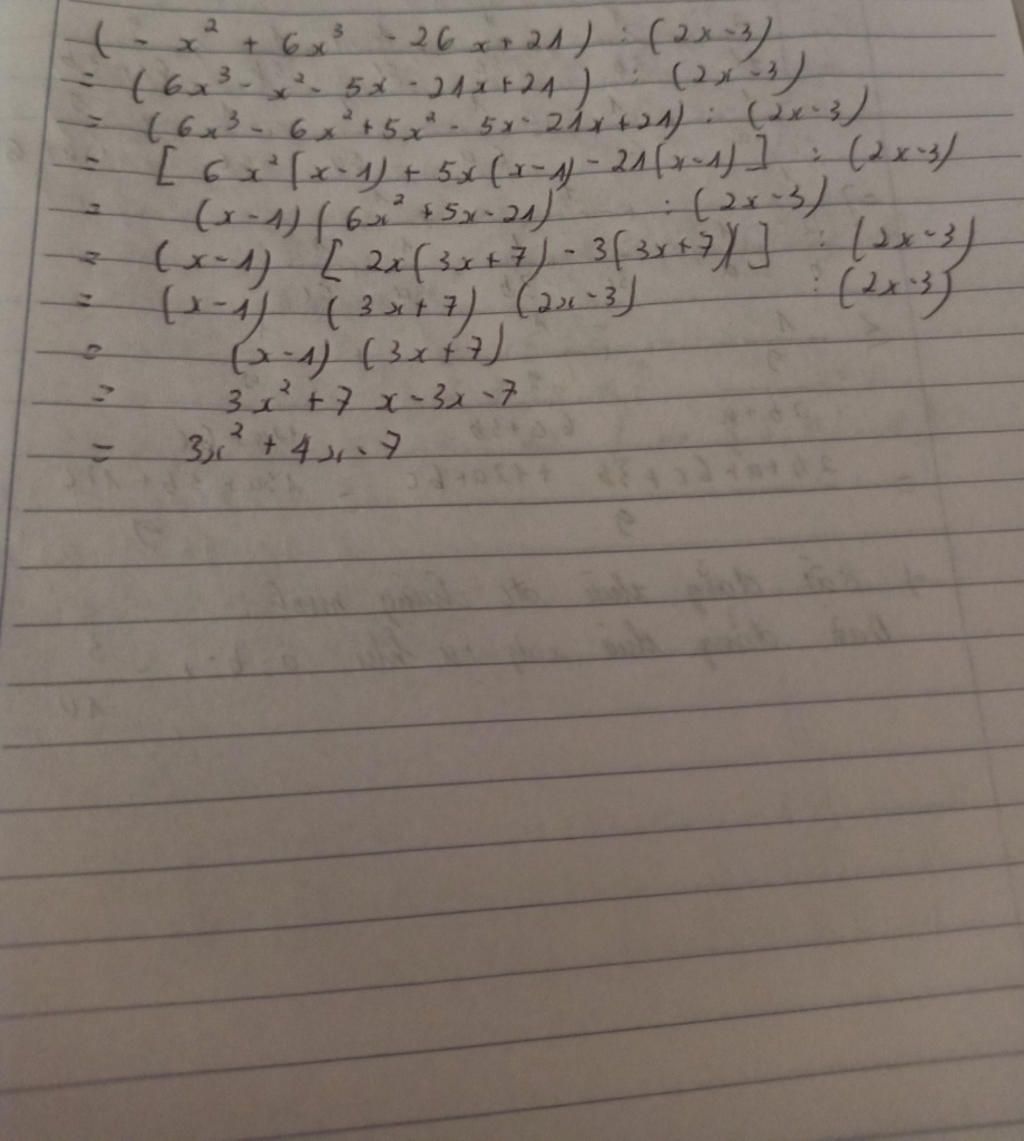 (- x² + 6x³ - 26x + 21) : (2x - 3)
= (6x³ - x² - 5x - 21x + 21) : (2x - 3)
= (6x³ - 6x² + 5x² - 5x - 21x + 21) : (2x - 3)
= [6x²(x - 1) + 5x(x - 1) - 21(x - 1)] : (2x - 3)
= (x - 1)(6x² + 5x - 21) : (2x - 3)
= (x - 1) [2x(3x + 7) - 3(3x + 7)] : (2x - 3)
= (x - 1) (3x + 7) (2x - 3) : (2x - 3)
= (x - 1) (3x + 7)
= 3x² + 7x - 3x - 7
= 3x² + 4x - 7